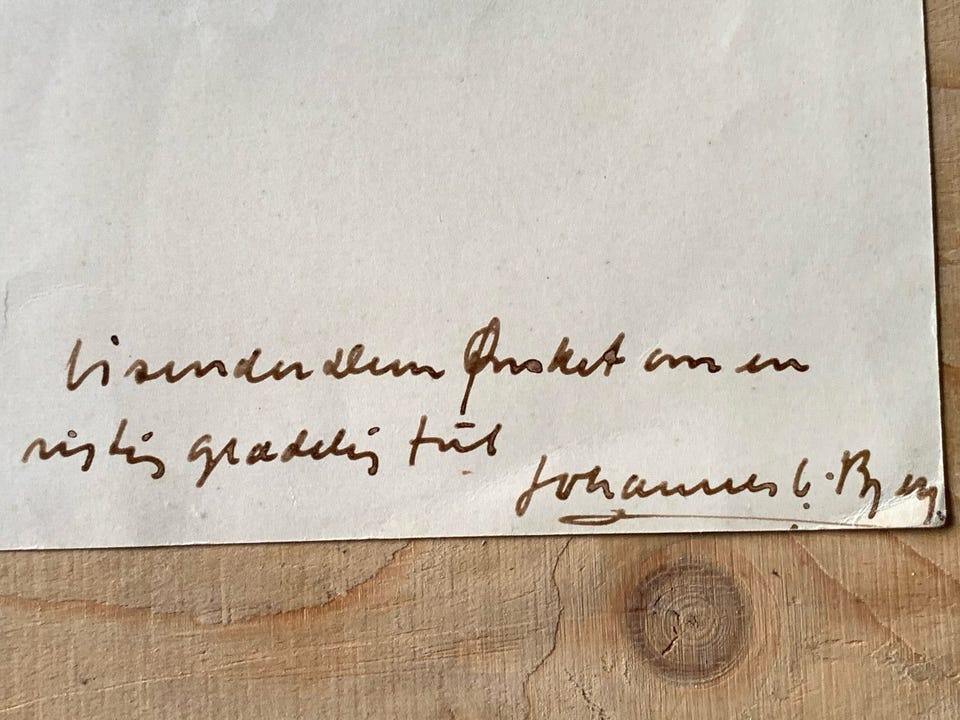 Vi sender dem Ønsket om en
rigtig glædelig Jul
Johannes C. Bjerg.